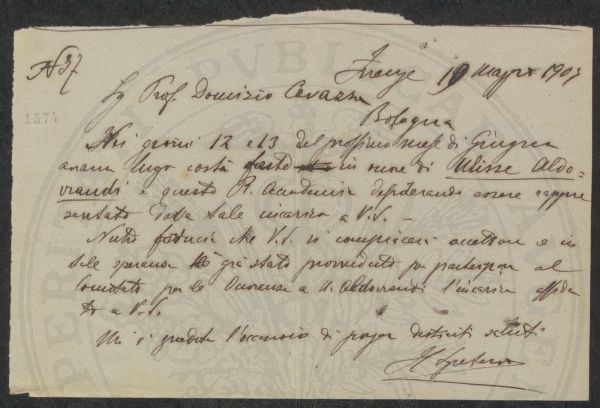 N 37
Firenze 19 Maggio 1907
1574
Sig Prof. Domizio Cavazza
Bologna
Nei giorni 12 e 13 del prossimo mese di Giugno
avranno luogo costà feste in onore di Ulisse Aldo=
vrandi e questa R. Accademia desiderando essere rappre
sentata dà tale incarico a V.S. –
Nutro fiducia che V.S. si compiacerà accettare e in
tale speranza già stato provveduto per partecipare al
Comitato per le Onoranze a U. Aldovrandi l'incarico affida
to a V.S.
Mi è gradita l'occasione di porger distinti saluti
Il